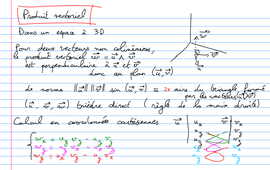 Produit vectoriel
Dans un espace à 3D
Pour deux vecteurs non colinéaires,
le produit vectoriel w⃗ = u⃗ ∧ v⃗
est perpendiculaire à u⃗ et v⃗
donc au plan (u⃗, v⃗)
de norme ||u⃗|| ||v⃗|| sin (u⃗, v⃗) = 2x aire du triangle formé
par les vecteurs (u⃗, v⃗)
(u⃗, v⃗, w⃗) trièdre direct (règle de la main droite)
Calcul en coordonnées cartésiennes